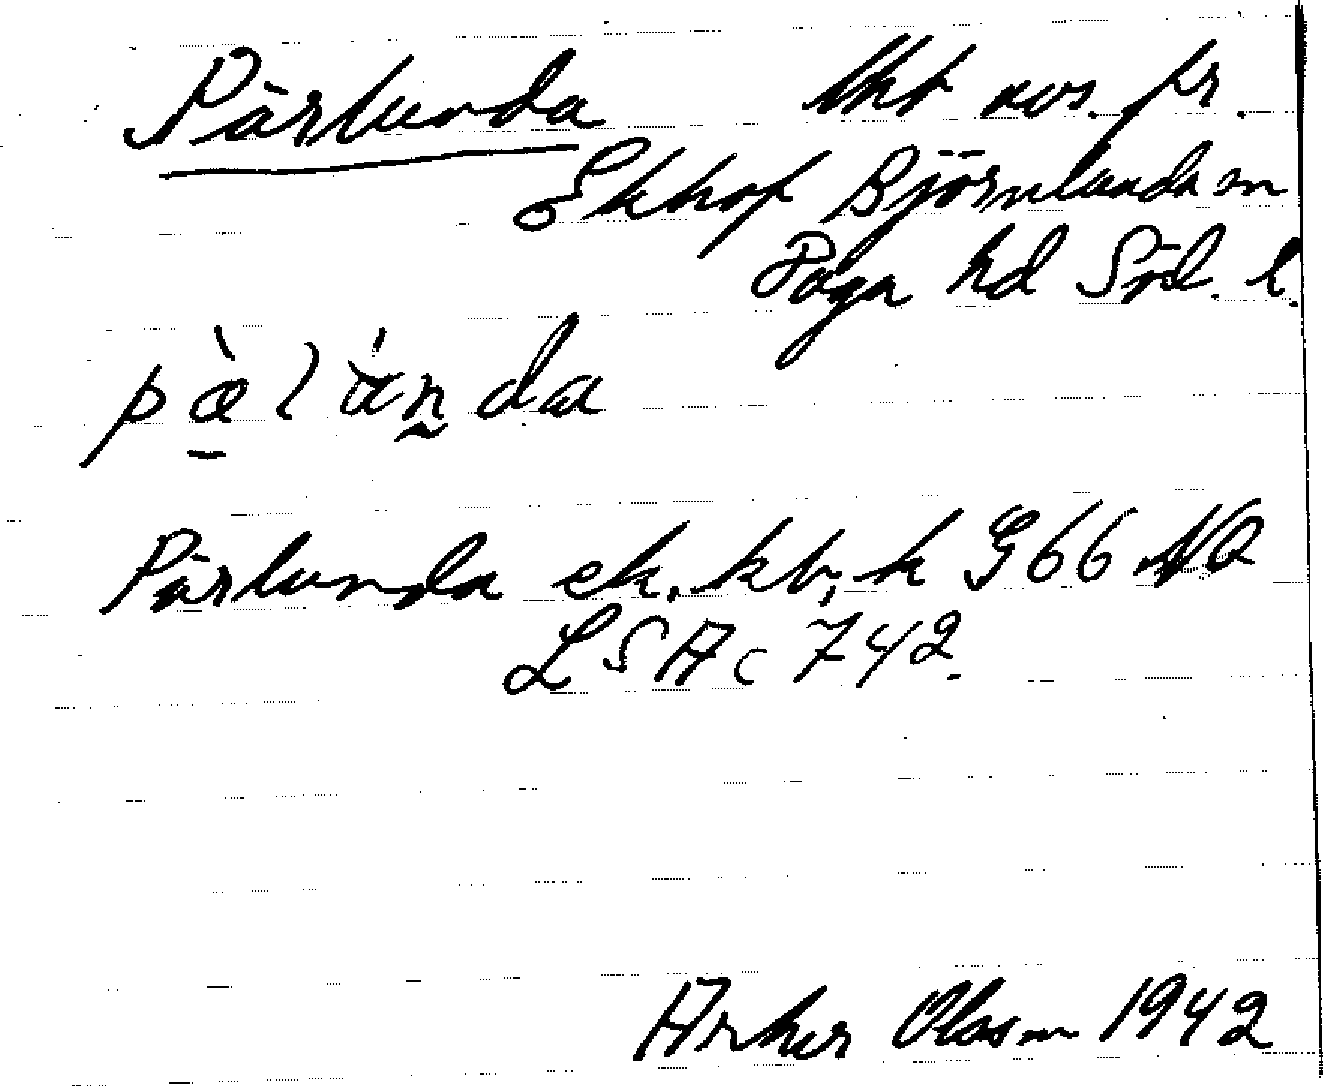 Pärlunda lht avs. fr.
Ekhof Björnlunda sn
Daga hd Söd. l.
Pärlunda ek. kb, k G 66 NO
LSA c 742.
Anker Olsson 1942